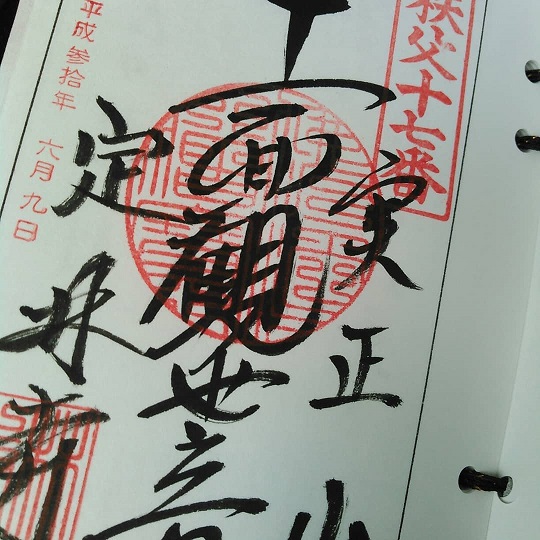 秩父十七番
実正山
十一面観世音
定林寺
平成参拾年 六月九日